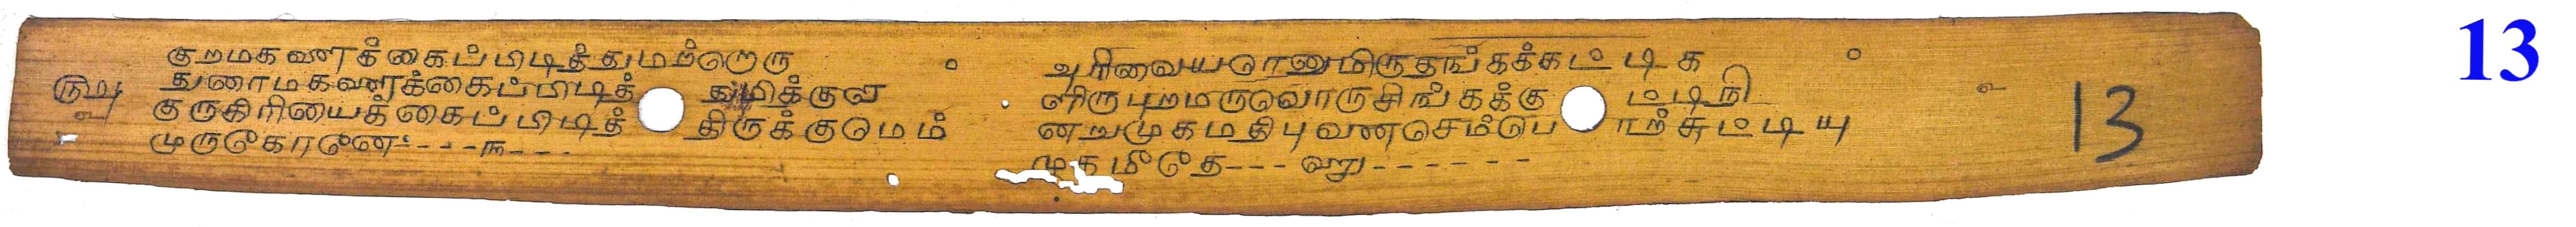 குறமகணக்கைப்பிடித்துமற்றொரு
துணாமகணக்கைப்பிடித் தமிக்குள
குருகிரியைக்கைப்பிடித் திருக்குமெம்
முருகேரனே---௩---
அரிவையரானுமிருதங்கக்கட்டிக
ளிருபுறமருவொருசிங்கக்கு ட்டிநி
னறுமுகமதிபுவணசெம்டுப ாற்சுட்டியு
முகமீதே---
13
13